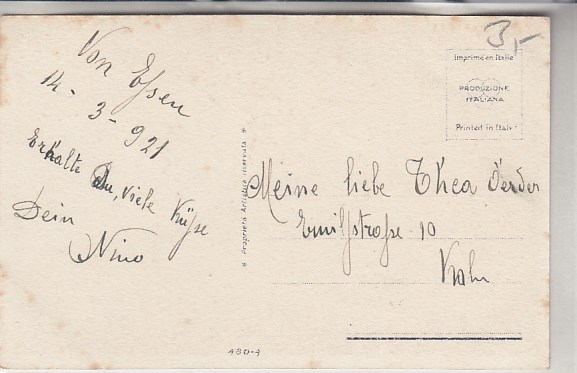 Von Essen
14 - 3 - 921
Erhalte Du, viele Küsse
Dein
Nino
* Proprietà Artistica riservata *
3,-
Imprimé en Italie
PRODUZIONE
ITALIANA
Printed in Italy
Meine liebe Thea
Emilstrasse 10
430-4